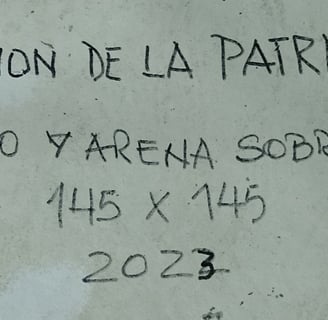 ION DE LA PATRI
O Y ARENA SOBR
145 X 145
2023